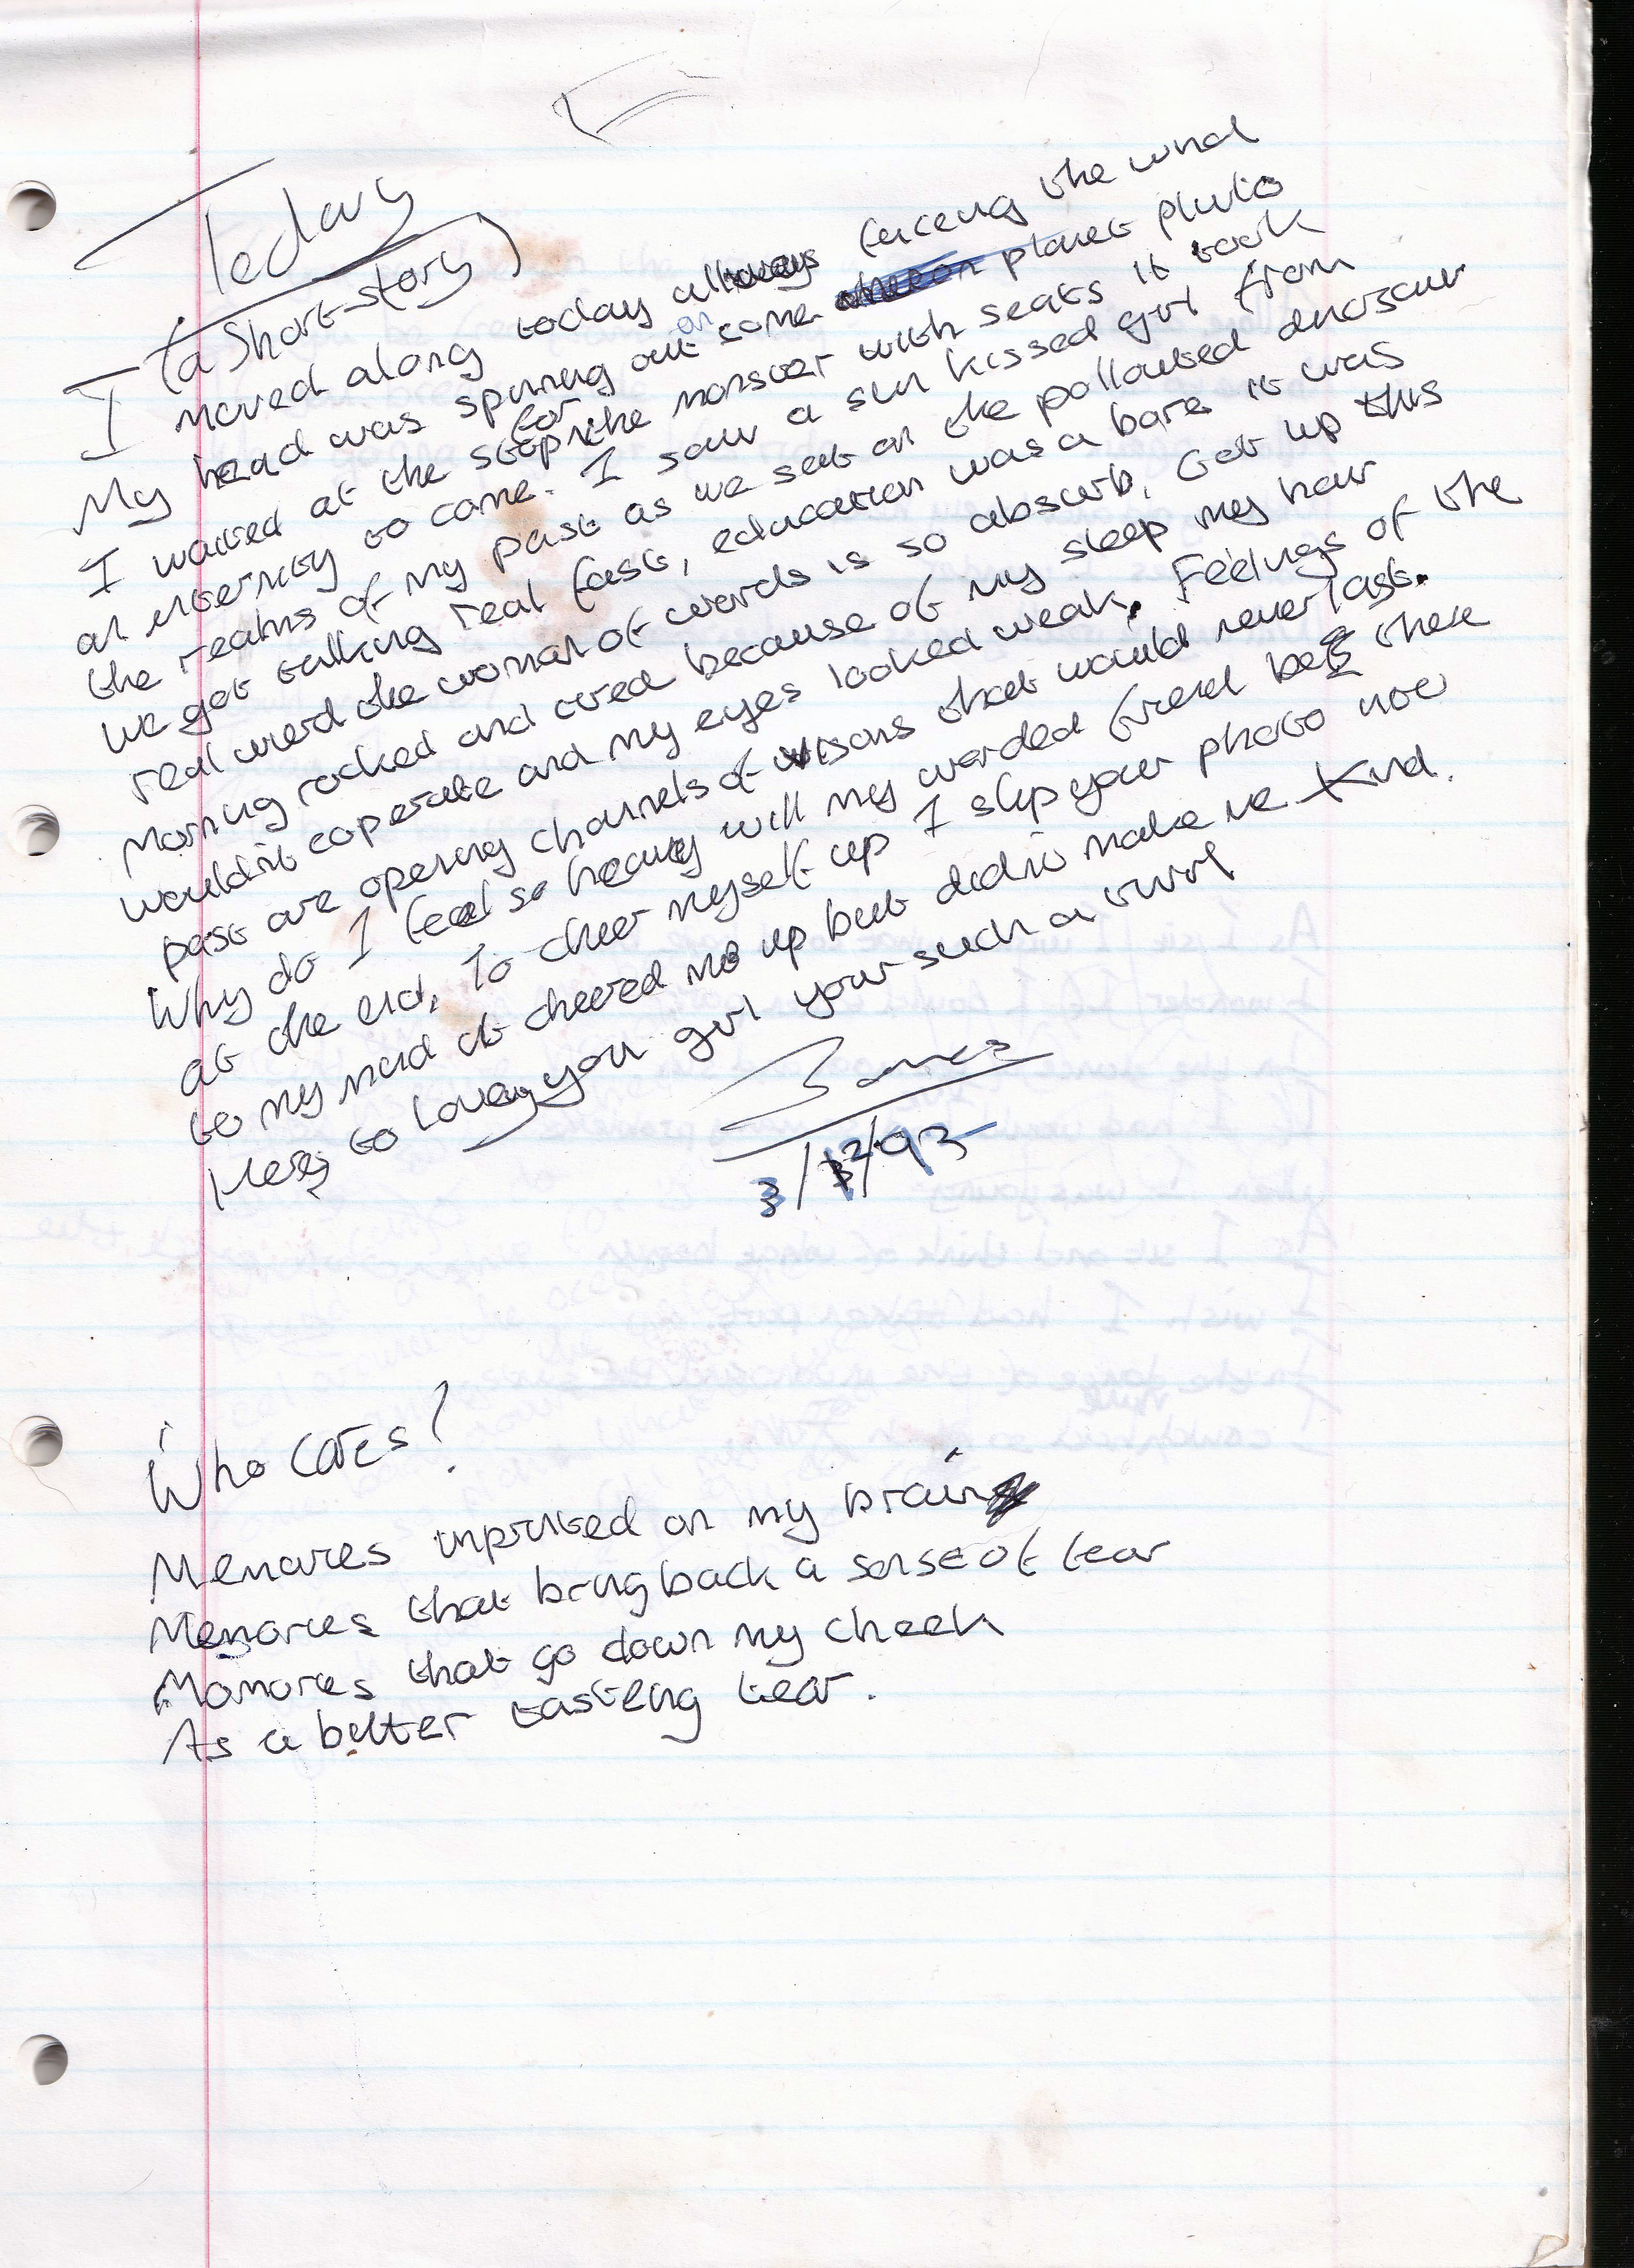 Today
(a Short story)
I moved along today allways faceing the wind
My head was spining out on some planet pluto
I waited at the stop for the monster with seats it took
an enternity to come. I saw a sun kissed girl from
the realms of my past as we sat on the polluted dinosaur
we got talking real fast, education was a bore it was
real weird the woman of words is so absurb, Got up this
Morning rocked and cred because of my sleep my hair
wouldnt coperate and my eyes looked weak. Feelings of the
past are opening channels of visons that would never last.
Why do I feel so heavy will my worded friend be there
at the end, To cheer myself up I slip your photo into
to my mind it cheered me up but didn't make me kind.
Heres to Loveyyou girl your such a
3/12/93
Who cares?
Memories imprinted on my brain
Memories that bring back a sense of fear
Momories that go down my cheek
As a bitter tasteing tear.